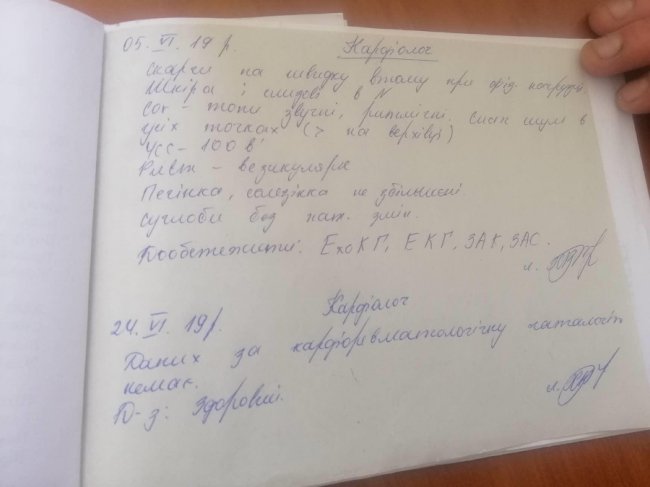 05. VI. 19 р. Кардіолог
Скарги на швидку втому при фіз. нагрузці.
Шкіра і слизові в N
Cor - тони звучні, ритмічні. Сист шум в
усіх точках (> на верхівці)
ЧСС - 100 в'
везикулярне
Печінка, селезінка не збільшені.
Суглоби без пат. змін.
Дообстежити: ЕхоКГ, ЕКГ, ЗАК, ЗАС.
л.
24. VI. 19 р. Кардіолог
Даних за кардіоревматологічну патологію
немає.
D-з: Здоровий.
л.